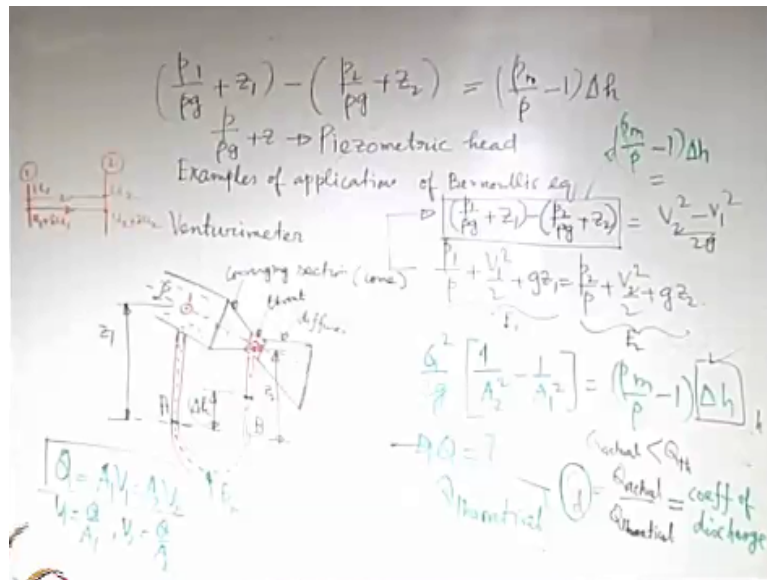 (p1/ρg + z1) − (p2/ρg + z2) = (ρm/ρ − 1)Δh
p/ρg + z → Piezometric head
(ρm/ρ − 1)Δh
=
Examples of application of Bernoulli's eq
1 2
Venturimeter
(p1/ρg + z1) − (p2/ρg + z2) = V2² − V1² / 2g
p1/ρ + V1²/2 + gz1 = p2/ρ + V2²/2 + gz2
E1 E2
converging section (cone)
throat
z1
Δh
A B
Q²/2g [1/A2² − 1/A1²] = (ρm/ρ − 1) Δh
→ Q = ?
Qactual < Qth
Qtheoretical
Cd = Qactual/Qtheoretical = coeff of discharge
Q = A1V1 = A2V2
V1 = Q/A1, V2 = Q/A2